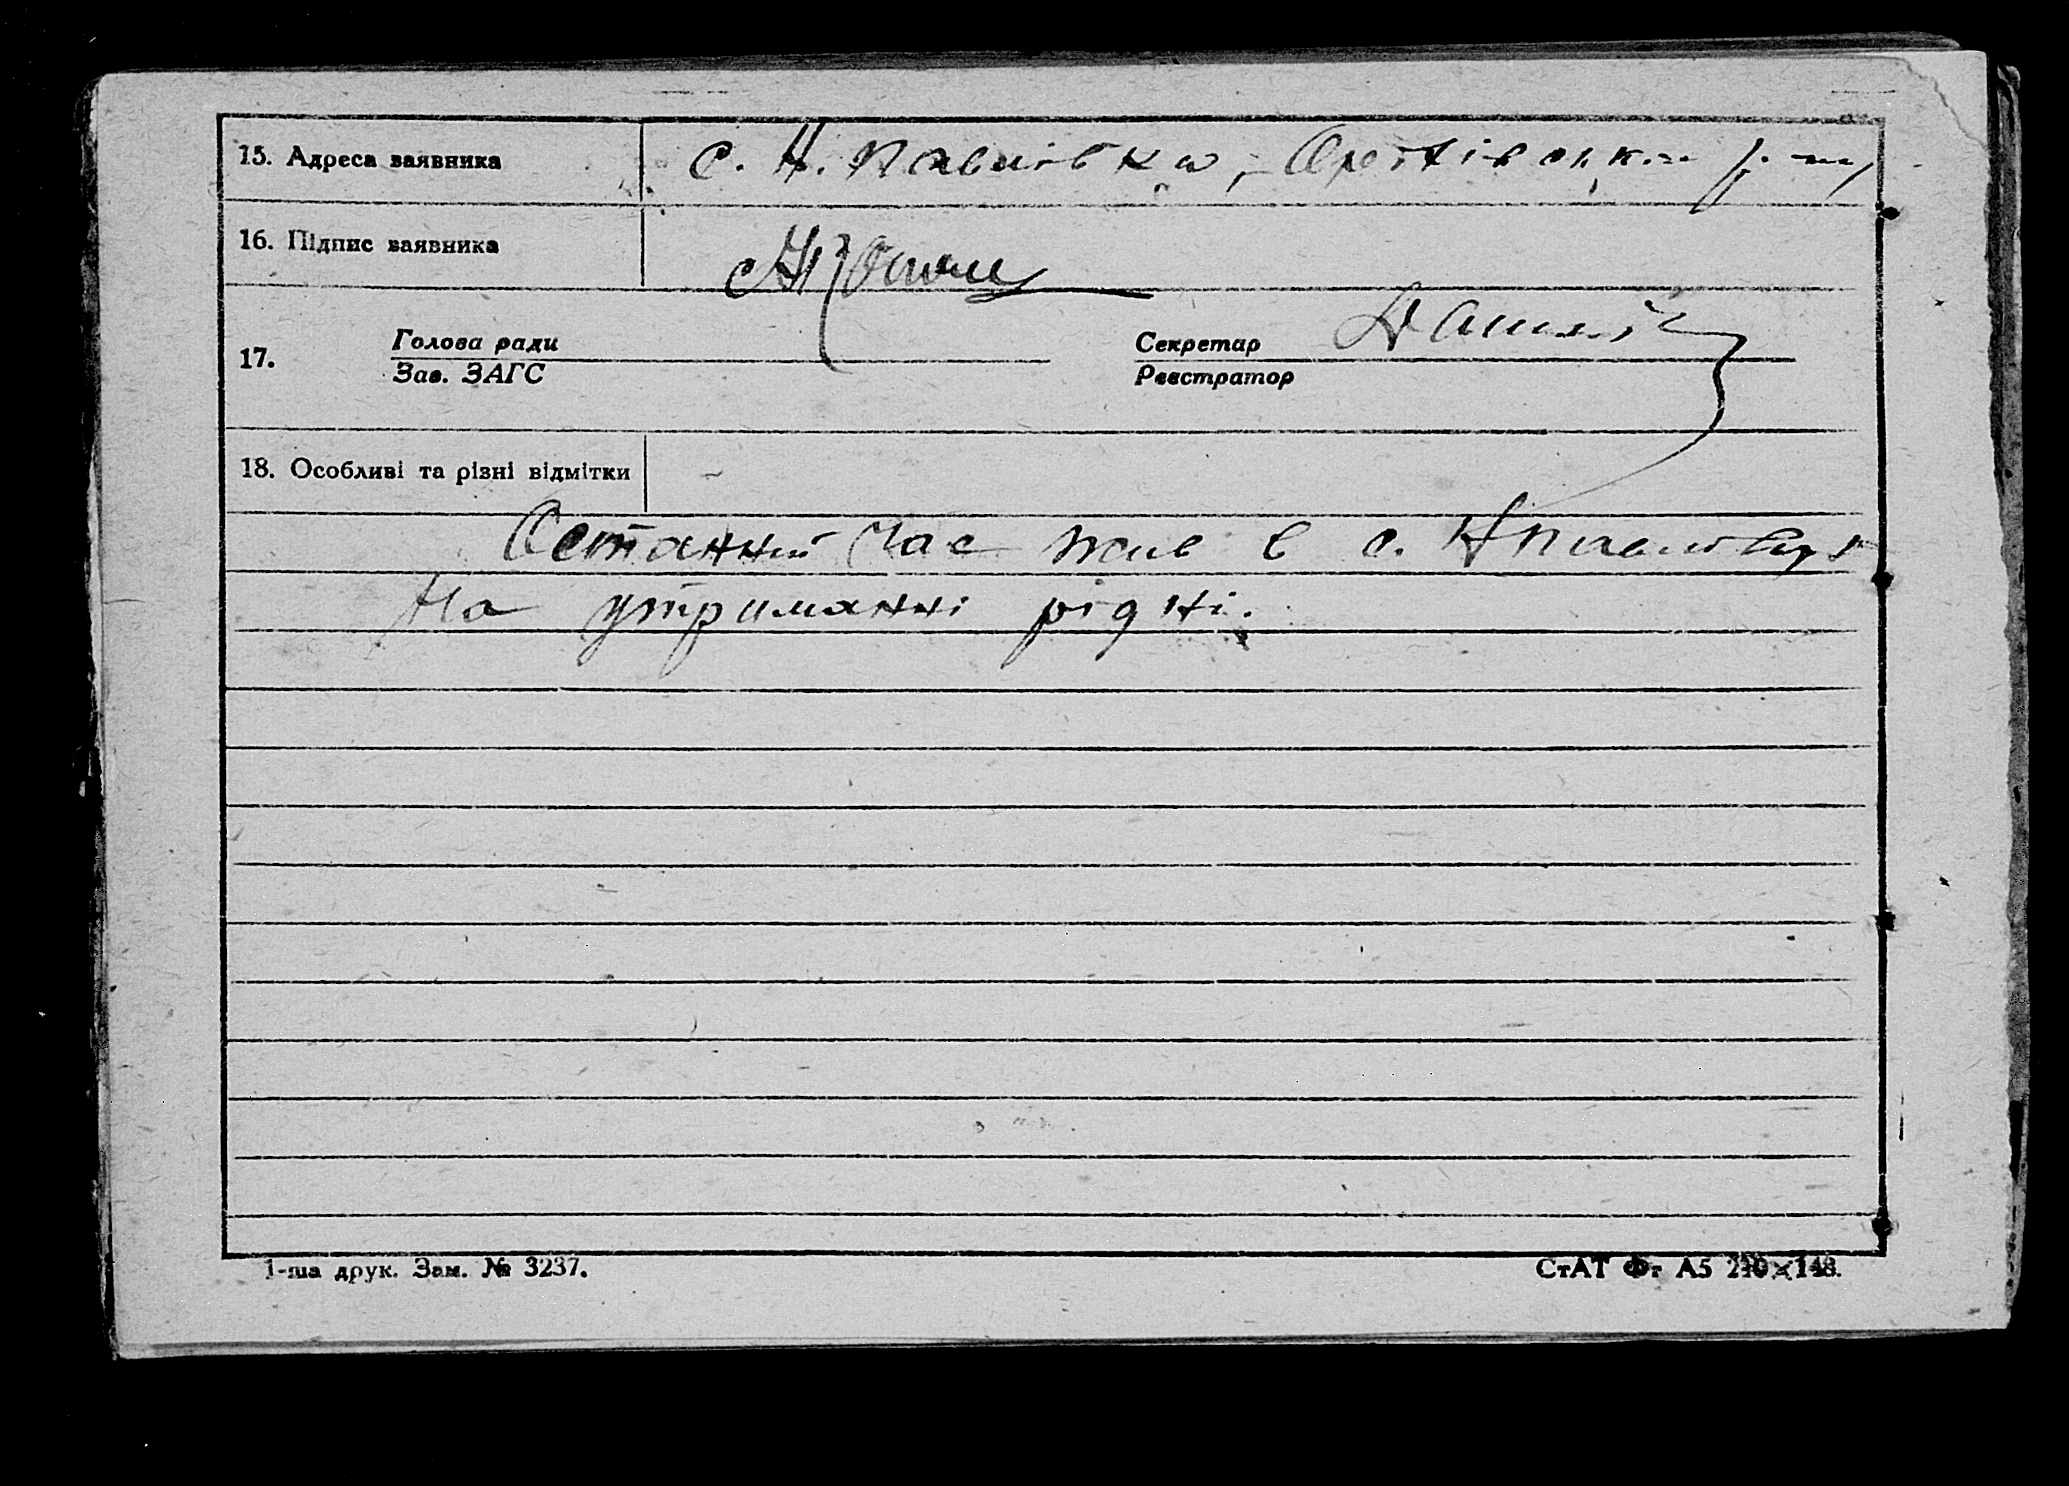 15. Адреса заявника с. Н. Павлівка, Оріхівськ. р-ну,
16. Підпис заявника
17. Голова ради Секретар
Зав. ЗАГС Реєстратор
18. Особливі та різні відмітки -
Останній час жив в с. Н павлівці
На утриманні рідні.
1-ша друк. Зам. № 3237. СтАТ Фг А5 210×148.